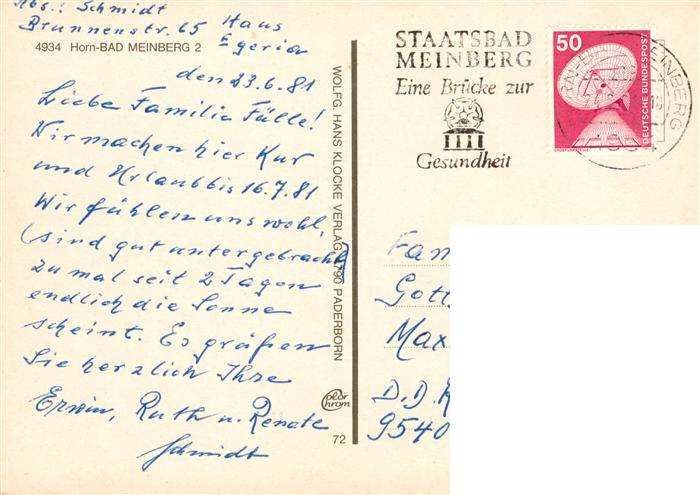 Abs.: Schmidt
Brunnenstr. 65 Haus
Egeria
4934 Horn-BAD MEINBERG 2
den 23.6.81
Liebe Familie Fülle!
Wir machen hier Kur
und Urlaub bis 16.7.81
Wir fühlen uns wohl,
(sind gut untergebracht)
zumal seit 2 Tagen
endlich die Sonne
scheint. Es grüßen
Sie herzlich Ihre
Erwin, Ruth u. Renate
Schmidt
WOLFG. HANS KLOCKE VERLAG 4790 PADERBORN
color chrom
72
STAATSBAD
MEINBERG
Eine Brücke zur
Gesundheit
50
DEUTSCHE BUNDESPOST
Fam
Gott
Max
D.D.R
9540